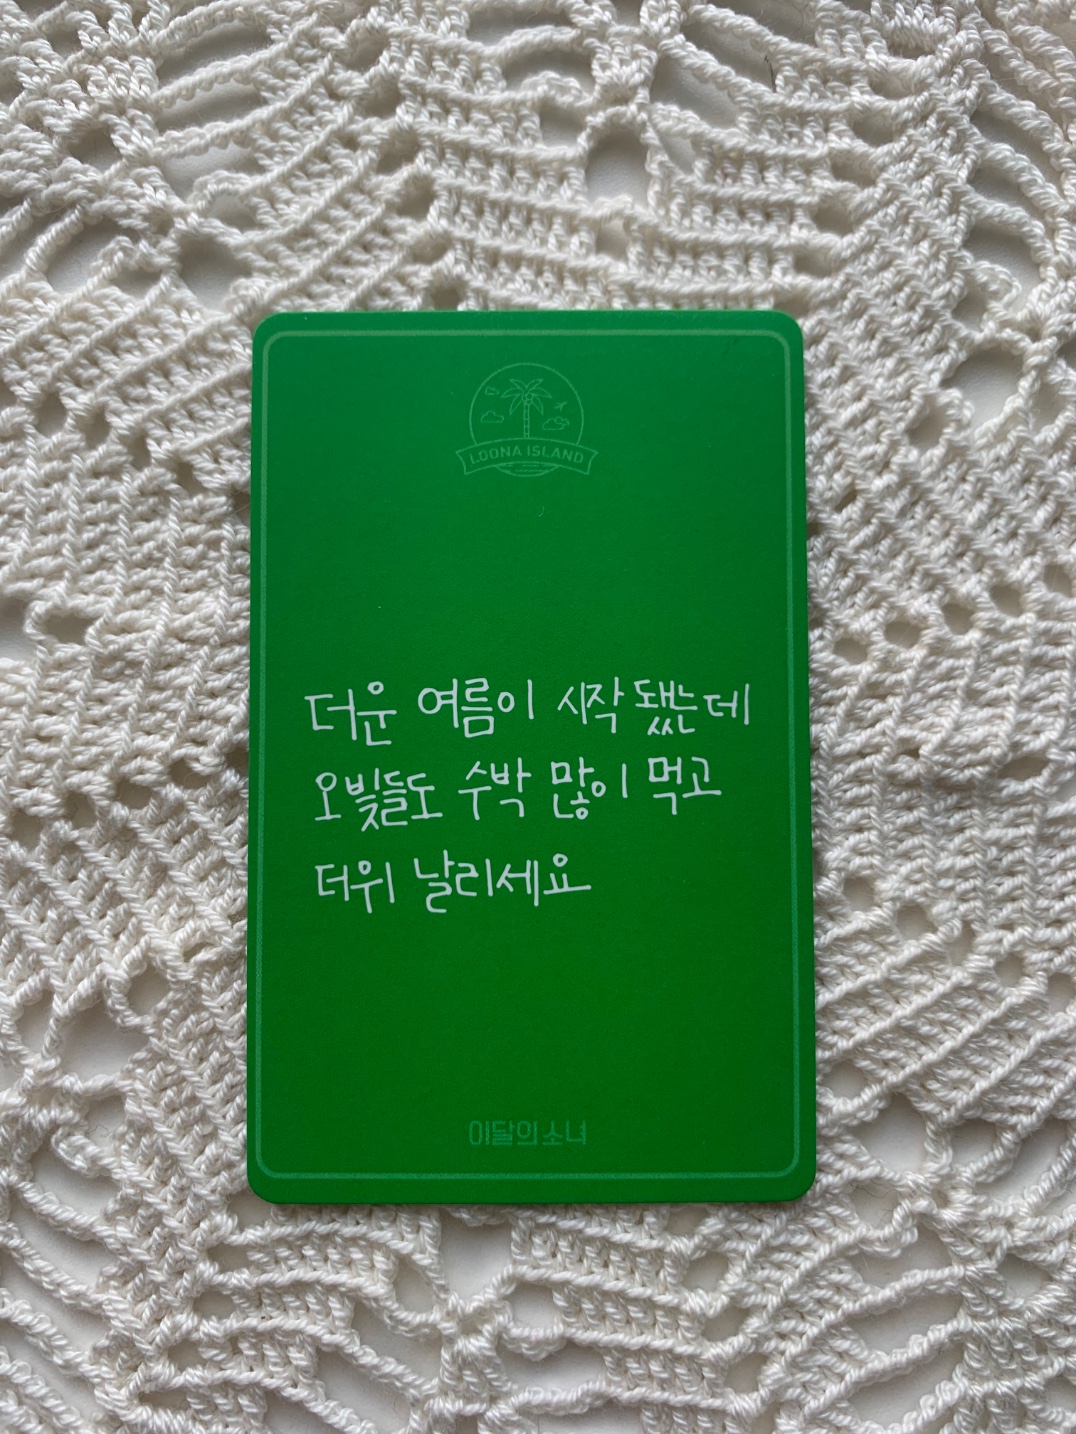 LOONA ISLAND
더운 여름이 시작됐는데
오빛들도 수박 많이 먹고
더위 날리세요
이달의 소녀